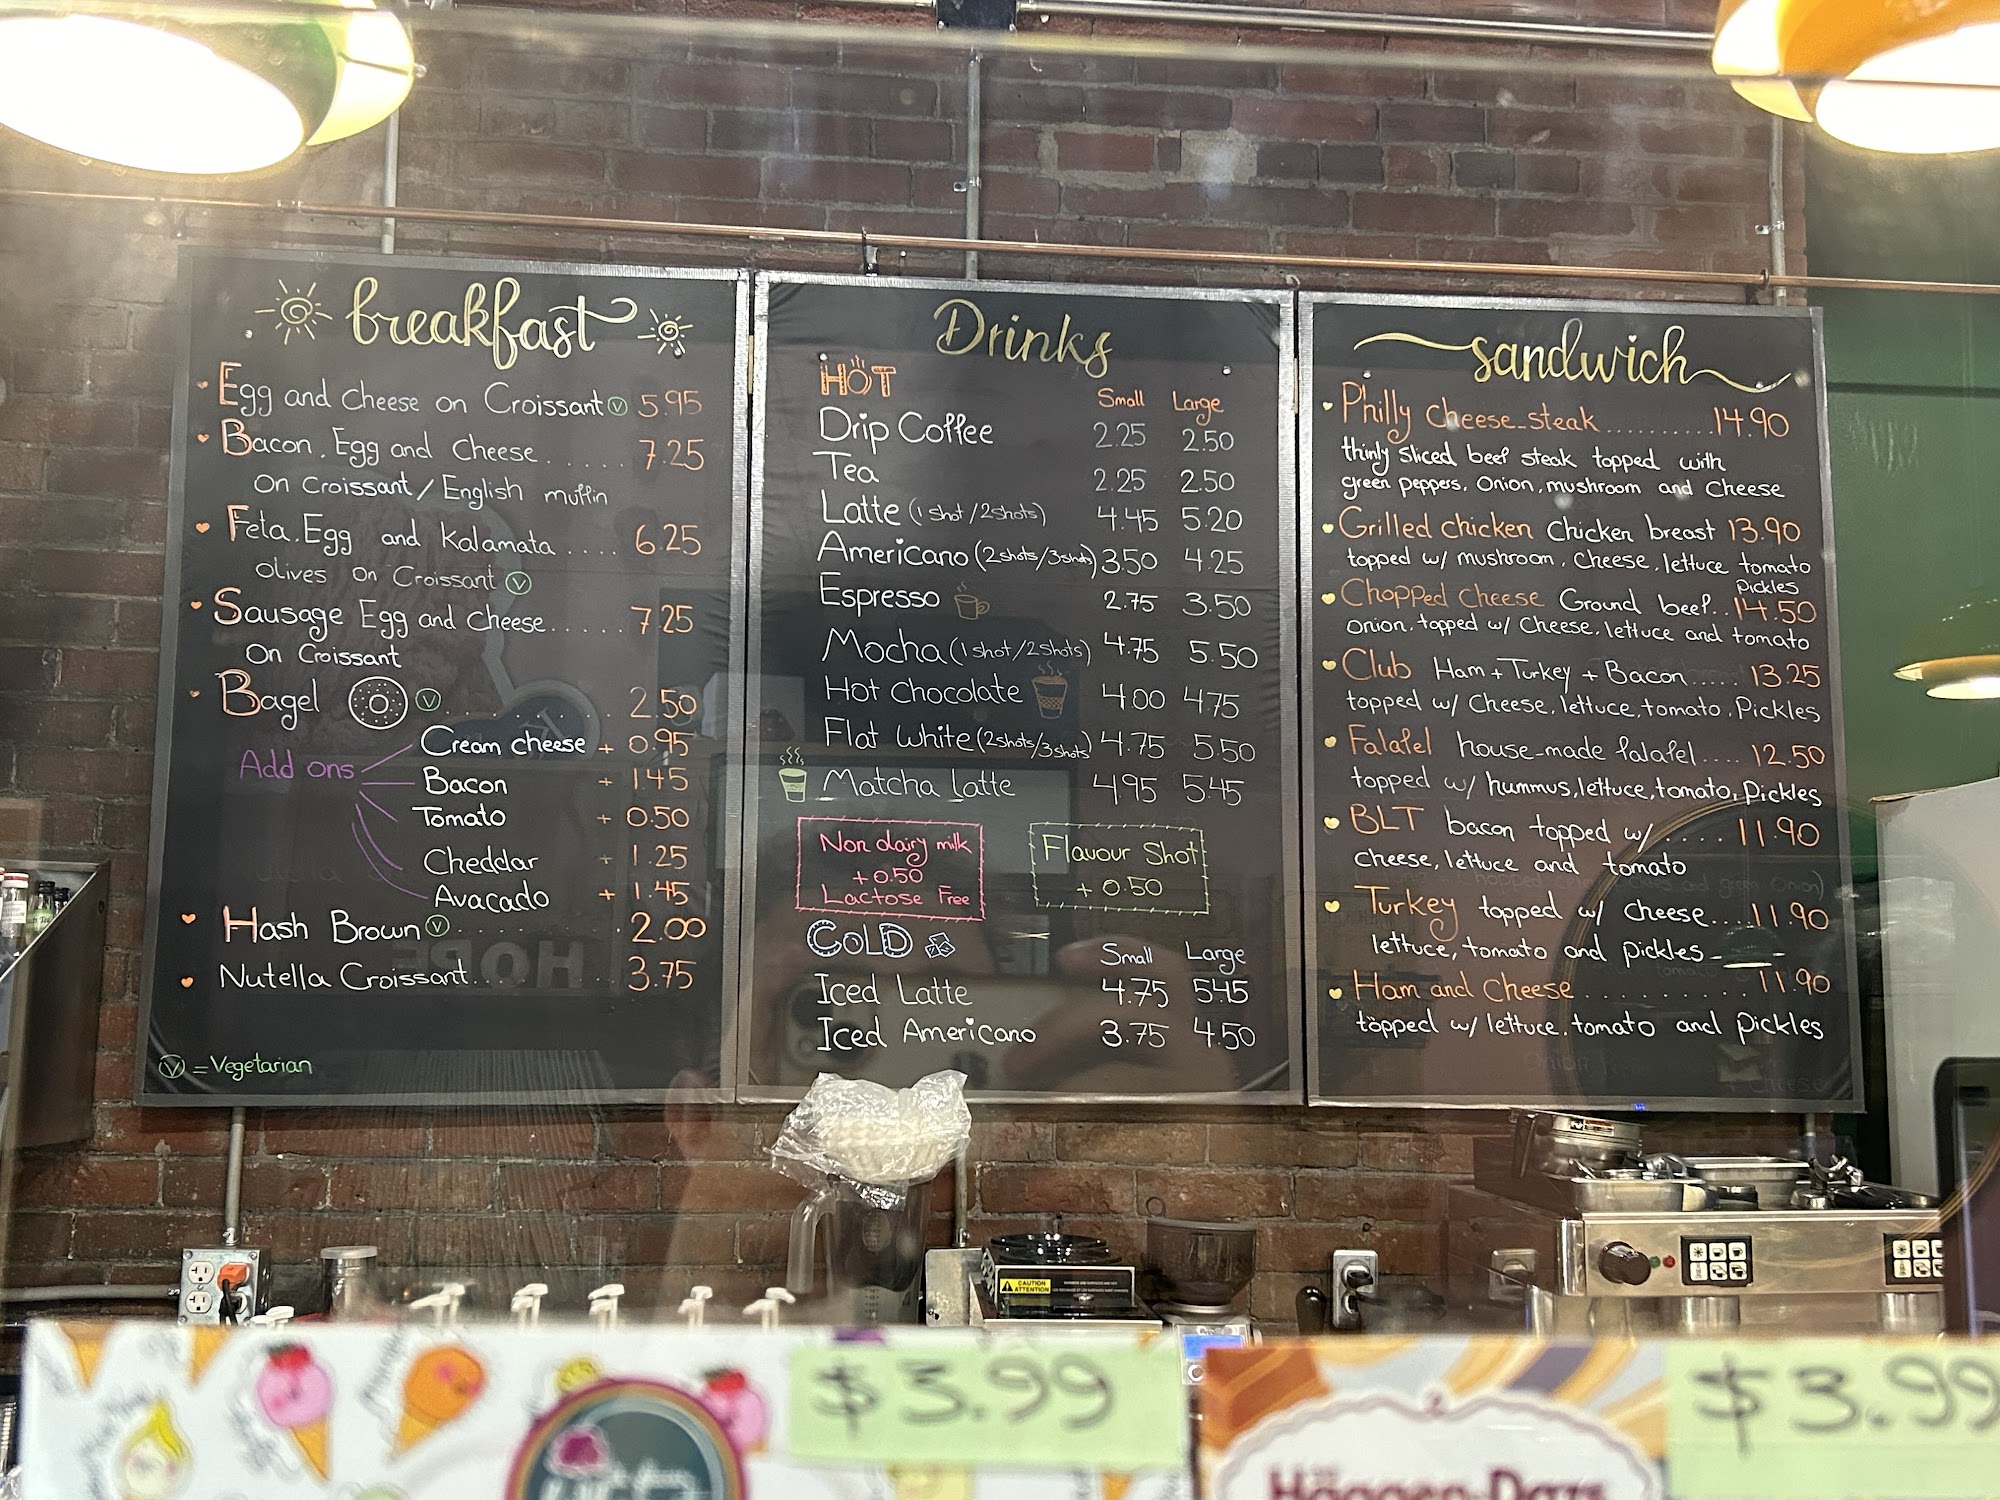 breakfast
Egg and cheese on Croissant V 5.95
Bacon, Egg and Cheese...... 7.25
On Croissant/English muffin
Feta, Egg and Kalamata .... 6.25
olives on Croissant V
Sausage Egg and cheese...... 7.25
On Croissant
Bagel V ........ 2.50
Add ons
Cream cheese + 0.95
Bacon + 1.45
Tomato + 0.50
Cheddar + 1.25
Avacado + 1.45
Hash Brown V ........ 2.00
Nutella Croissant........ 3.75
V = Vegetarian
Drinks
HOT Small Large
Drip Coffee 2.25 2.50
Tea 2.25 2.50
Latte (1 shot/2shots) 4.45 5.20
Americano (2shots/3shots) 3.50 4.25
Espresso 2.75 3.50
Mocha (1shot/2shots) 4.75 5.50
Hot chocolate 4.00 4.75
Flat white (2shots/3shots) 4.75 5.50
Matcha latte 4.95 5.45
Non dairy milk
+0.50
Lactose Free
Flavour Shot
+ 0.50
COLD Small Large
Iced Latte 4.75 5.45
Iced Americano 3.75 4.50
sandwich
Philly cheese-steak.......... 14.90
thinly sliced beef steak topped with
green peppers, Onion, mushroom and Cheese
Grilled chicken Chicken breast 13.90
topped w/ mushroom, Cheese, lettuce tomato
Pickles
Chopped cheese Ground beef.. 14.50
onion, topped w/ Cheese, lettuce and tomato
Club Ham + Turkey + Bacon..... 13.25
topped w/ Cheese, lettuce, tomato, Pickles
Falafel house-made falafel.... 12.50
topped w/ hummus, lettuce, tomato, Pickles
BLT bacon topped w/ .... 11.90
cheese, lettuce and tomato
Turkey topped w/ cheese.... 11.90
lettuce, tomato and pickles
Ham and cheese.......... 11.90
topped w/ lettuce, tomato and pickles
CAUTION
ATTENTION
$3.99
$3.99
Häagen-Dazs